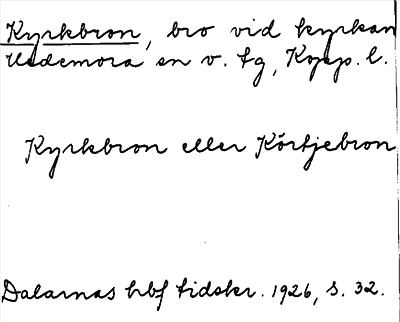 Kyrkbron, bro vid kyrkan
Hedemora sn v. tg, Kopp. l.
Kyrkbron eller Körtjebron
Dalarnas hbf tidskr. 1926, s. 32.